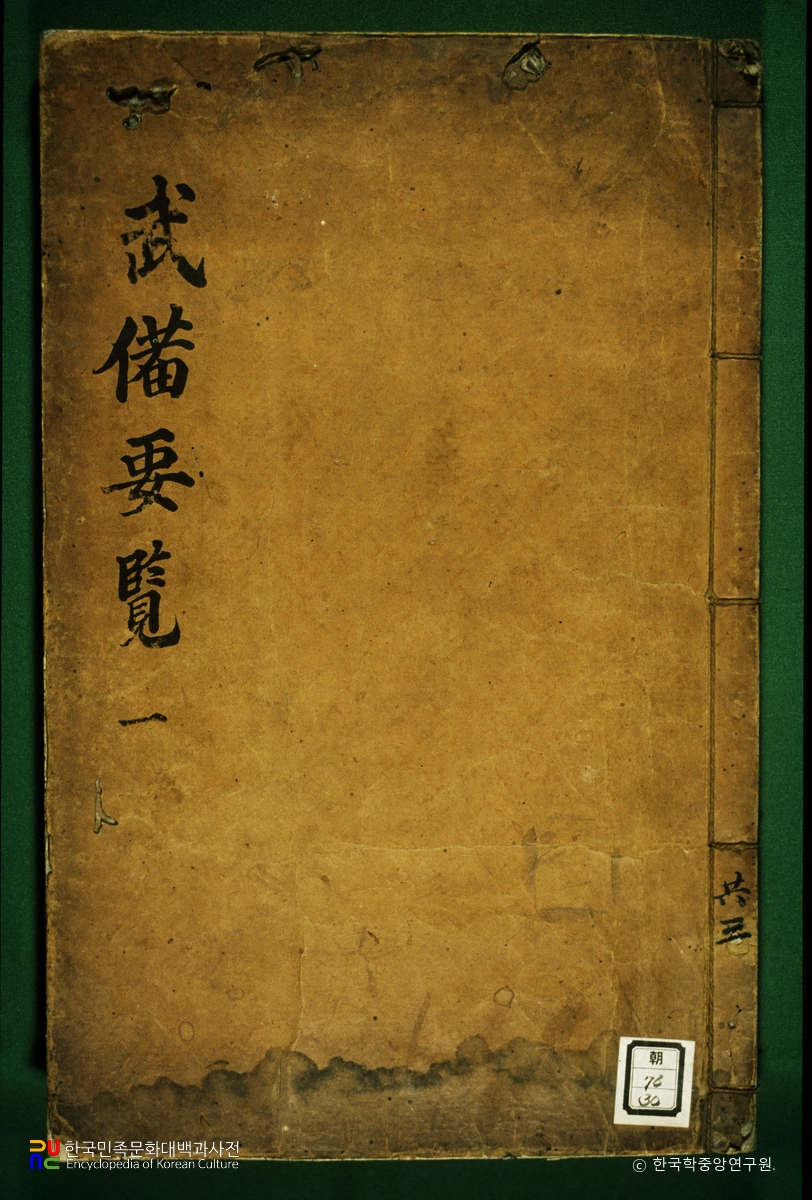 武備要覽 一
共三
朝
76
30
한국민족문화대백과사전
Encyclopedia of Korean Culture
© 한국학중앙연구원.